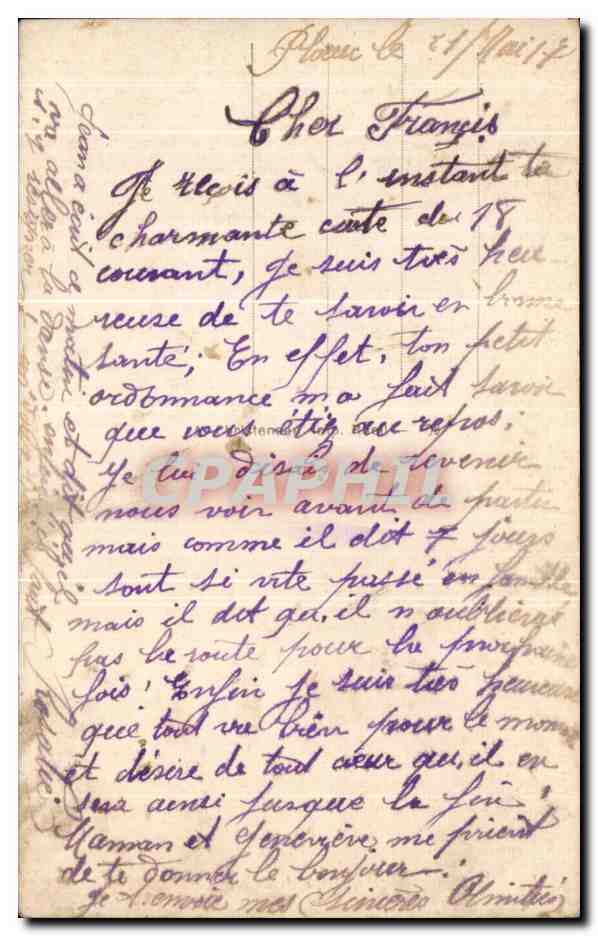 Plouec le 21/Mai 17
Cher Françis
Je reçois à l'instant ta
charmante carte du 18
courant, Je suis très heu-
reuse de te savoir en bonne
santé; En effet, ton petit
ordonnance m a fait savoir
que vous étiez au repos;
Je lui disais de revenir
nous voir avant de partir
mais comme il dit 7 jours
sont si vite passé en famille
mais il dit qu,il n oublierai
pas la route pour la prochaine
fois! Enfin Je suis très heureuse
que tout va bien pour le moment
et désire de tout cœur qu,il en
sera ainsi Jusque la fin!
Maman et Geneviève me prient
de te donner le bonjour.
Je t.envoie mes Sincères Amitiés
Jean a écrit a matin et dit qu,il
va aller à la danse
CPAPHIL